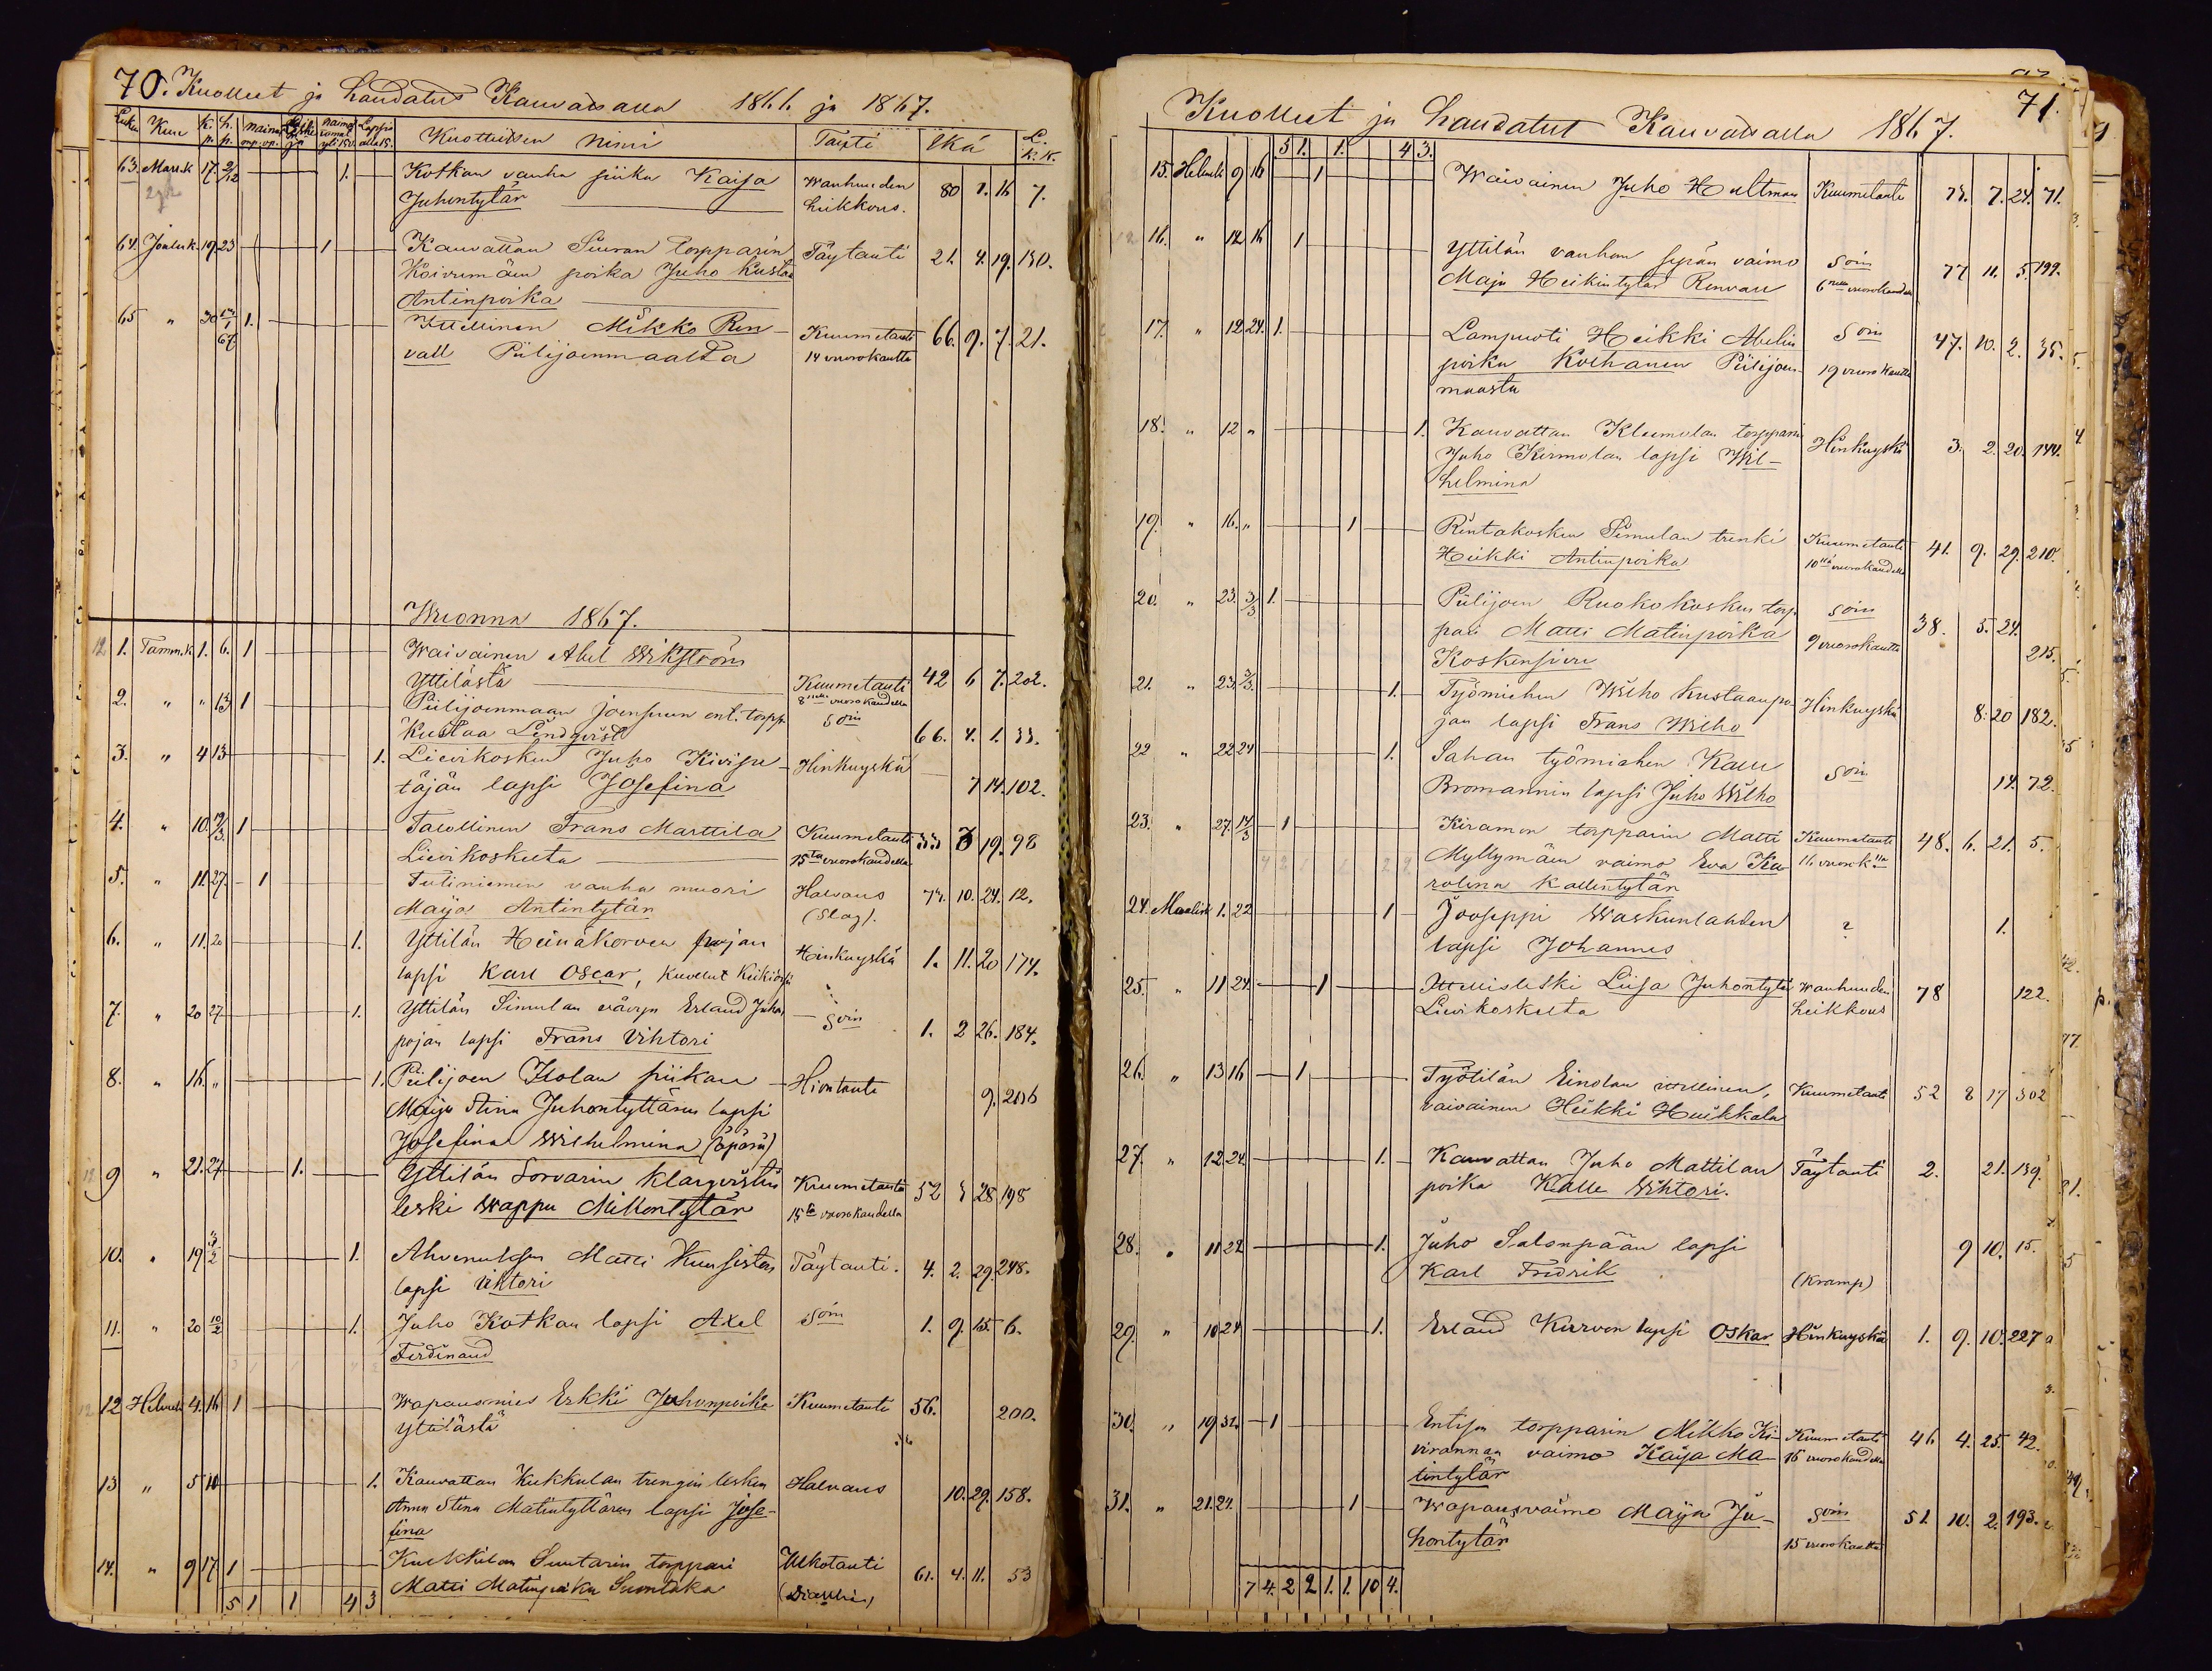 70. Kuolleet ja haudatut Kauvatsalla 1866 ja 1867.
Luku Kuu K. p. h. p. Kuolleitten nimi Tauti Ikä L. K. K.
63. Marr.k 17. 2/12 1. Kotkan vanha piika Kaisa Wanhuuden 80 1. 16 7.
Juhontytär heikkous.
64. Jouluk. 19. 23 1 Kauvattan Suuran torpparin Täytauti 21. 4. 19. 130.
Koivumäen poika Juho Kustaa
Antinpoika
65 " 30 1. Itellinen Mikko Ren- Kuumetauti 66. 9. 7. 21.
vall Piilijoenmaalta 14 vuorokautta
Wuonna 1867.
12 1. Tamm.k 1. 6. 1 Waivainen Abel Wikström
Yttilästä Kuumetauti 42 6 7. 202.
8 vuorokaudella
2. " " 13 1 Piilijoenmaan Joensuun ent. torpp. soin
Kustaa Lindqvist 66. 4. 1. 33.
3. " 4 13 1. Lievikosken Juho Kivipu- Hinkuyskä
täjän lapsi Josefina 7 14. 102.
4. " 10. 1 Talollinen Frans Marttila Kuumetauti 33 7 19. 98
Lievikoskelta 15ta vuorokaudella
5. " 11. 27. 1 Tuliniemen vanha muori Halvaus 10. 24. 12.
Maija Antintytär (Slag).
6. " 11. 20 1. Yttilän Heinäkorven pojan Hinkuyskä 1. 11. 20 174.
lapsi Karl Oscar, kuollut Kiikoissa
7. " 20 27 1. Yttilän Simulan vävyn Erland Juho soin 1. 2 26. 184.
pojan lapsi Frans Vihtori
8. " 16. " 1. Piilijoen Isolan piikan
Maija Stina Juhontyttären lapsi 9. 206
Josefina Wilhelmina (äpärä)
12 9 " 21. 27 1. Yttilän Sorvarin
leski Wappu Mikkontytär Kuumetauti 52 28 198
15ta vuorokaudella
10. " 19 1. Matti Kuusiston Täytauti. 4. 2. 29. 248.
lapsi Vihtori
11. " 20 10/2 1. Juho Kotkan lapsi Axel soin 1. 9. 15. 6.
Ferdinand
12 12 Helmik 4. 16 1 Wapausmies Erkki Juhonpoika Kuumetauti 56. 200.
Yttilästä
13 " 5 10 1. Kauvattan Kukkulan trengin lesken Halvaus 10. 29. 158.
Anna Stina Matintyttären lapsi Jose-
fina
14. " 9 17 1 Kukkilan Suutarin torppari Ulkotauti 61. 4. 11. 53
Matti Matinpoika Suontaka
5 1 1 4 3
71.
Kuolleet ja haudatut Kauvatsalla 1867.
5 1. 1. 4 3.
15. Helmik 9 16 1 Waivainen Juho Hultman Kuumetauti 7. 24. 71.
16. " 12 16 1 Yttilän vanhan sepän vaimo soin 77 11. 5. 199.
Maja Heikintytär Renvall 6 vuorokaudella
17. " 12 24. 1. Lampuoti Heikki Abelin soin 47. 10. 2. 35.
poika Kolhanen Piilijoen- 19 vuorokautta
maasta
18. " 12 " 1. Kauvattan Kleemolan torpparin Hinkuyskä 3. 2. 20. 144.
Juho Kirmolan lapsi Wil-
helmina
19. " 16. " 1 Rintakosken Simulan trenki Kuumetauti 41. 9. 29. 210.
Heikki Antinpoika 10llä vuorokaudella
20. " 23. 3/3 1. Piilijoen Ruokokosken torp- soin 38. 5. 24.
pari Matti Matinpoika 9 vuorokautta 215.
Koskensivu
21. " 23. 3/3. 1. Työmiehen Wilho Kustaanpo- Hinkuyskä 8. 20 182.
jan lapsi Frans Wilho
22 " 22 24 1. Sahan työmiehen Kalle soin 14. 72.
Bromannin lapsi Juho Wilho
23. " 27. 17/3 1 Kiramon torpparin Matti Kuumetauti 48. 6. 21. 5.
Myllymäen vaimo Eva Ka-
rolina Kallentytär
24. Maalisk 1. 22 1 Jooseppi Waskunlahden ? 1.
lapsi Johannes
25. " 11 24 1 Itellisleski Liisa Juhontytär Wanhuuden 78 122.
Lievikoskelta heikkous
26. " 13 16 1 Työtilän Einolan itellinen, Kuumetauti 52 8 17 302
vaivainen Heikki Huikkala
27. " 12. 24. 1. Kauvattan Juho Mattilan Täytauti 2. 21. 139.
poika Kalle Wihtori.
28. " 11 24 1. Juho Salonpään lapsi 9 10. 15.
Karl Fridrik (Kramp)
29. " 10 24 1. Erland Kurvon lapsi Oskar Hinkuyskä 1. 9. 10. 227
30. " 19 31. 1 Entisen torpparin Mikko Ki- Kuumetauti 46 4. 25. 42.
virannan vaimo Kaisa Ma- 16 vuorokaudella
tintytär
31. " 21. 24. 1 Wapausvaimo Maija Ju- soin 51. 10. 2. 193.
hontytär 15 vuorokautta
7 4. 2 2 1. 1. 10 4.